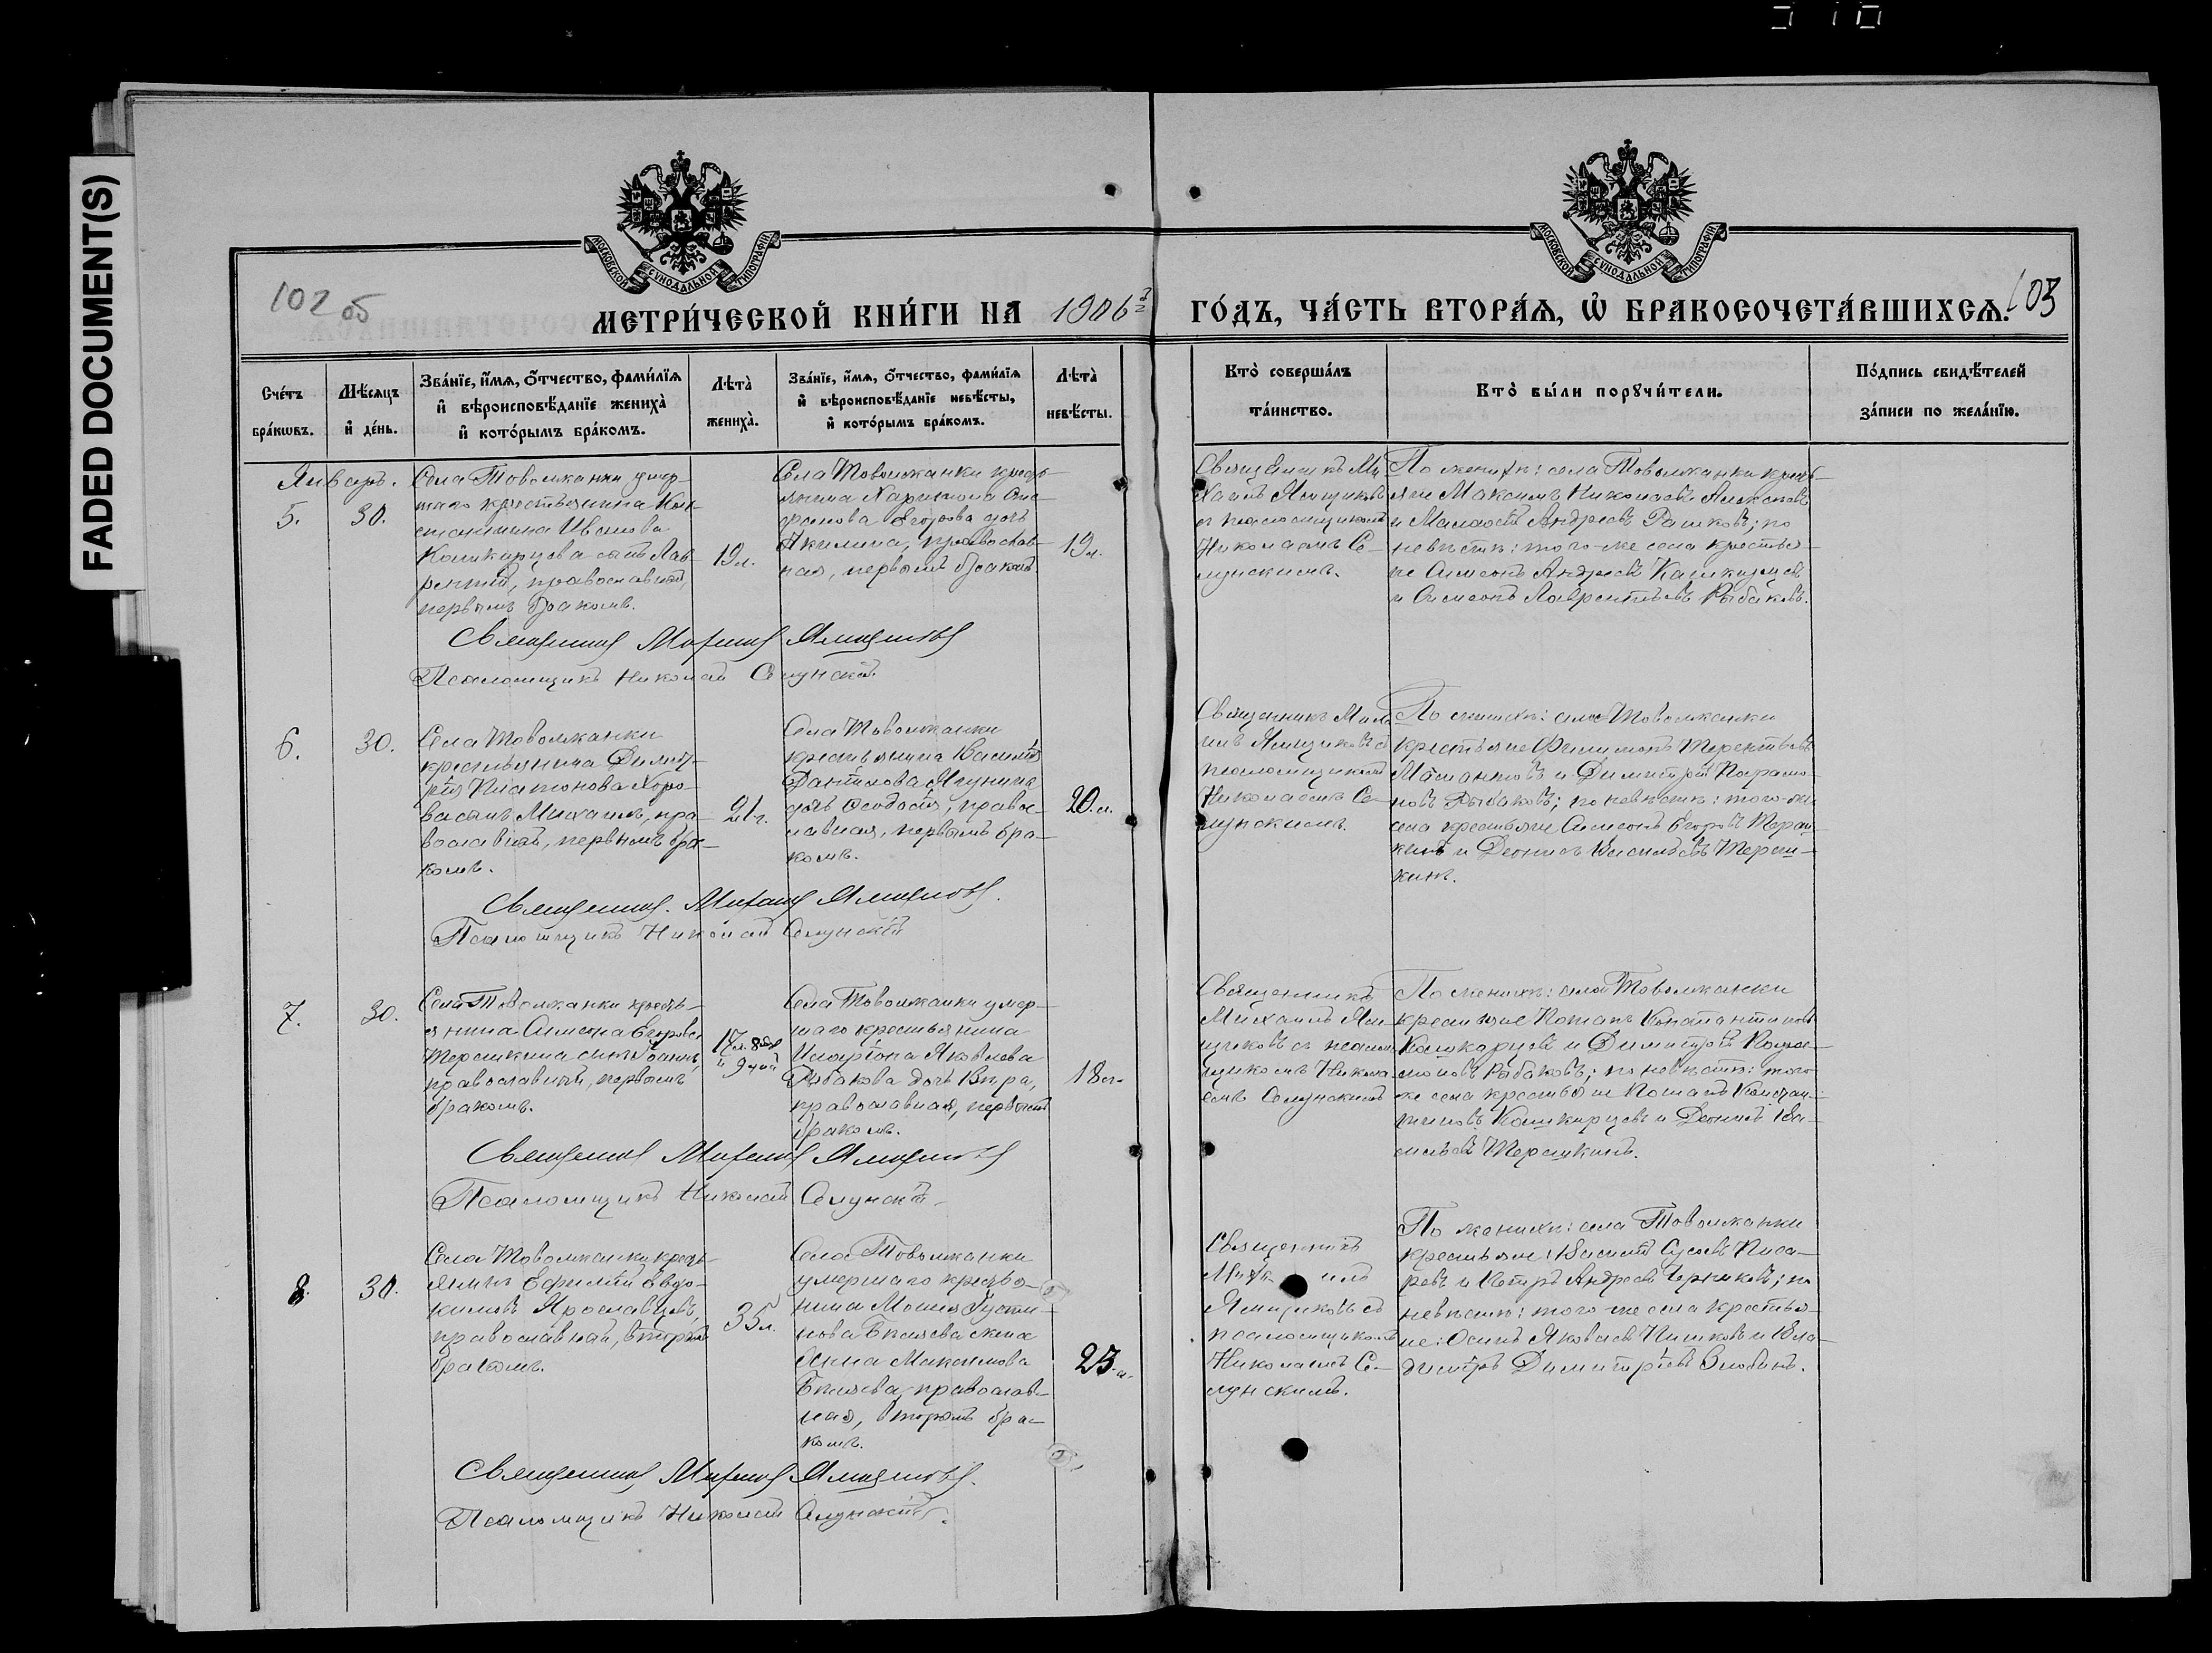 FADED DOCUMENT(S)
102 об
103
МОСКОВСКОЙ СУНОДАЛЬНОЙ ТИПОГРАФІИ
МОСКОВСКОЙ СУНОДАЛЬНОЙ ТИПОГРАФІИ
МЕТРИ́ЧЕСКОЙ КНИ́ГИ НА 1906 ГО́ДЪ, ЧА́СТЬ ВТОРА́Я, Ѡ БРАКОСОЧЕТА́ВШИХСЯ.
Сче́тъ
бра́кωвъ.
Мѣ́сяцъ
и҆ де́нь.
Зва́нїе, и҆́мя, о҆́тчество, фами́лїя
и҆ вѣроисповѣ́данїе жениха̀
и҆ кото́рымъ бра́комъ.
Лѣта̀
жениха̀.
Зва́нїе, и҆́мя, о҆́тчество, фами́лїя
и҆ вѣроисповѣ́данїе невѣ́сты,
и҆ кото́рымъ бра́комъ.
Лѣта̀
невѣ́сты.
Кто̀ соверша́лъ
та́инство.
Кто̀ бы́ли порꙋчи́тели.
По́дпись свидѣ́телей
за́писи по жела́нїю.
Январь.
5.
30.
Села Товолжанки умер-
шаго крестьянина Кон-
стантина Иванова
Кашкарцева сынъ Лав-
рентій, православный,
первымъ бракомъ.
19 л.
Села Товолжанки кресть-
янина Харитона
Егорова дочь
Акилина, православ-
ная, первымъ бракомъ
19 л.
Священникъ Ми-
хаилъ Ямщиковъ
съ псаломщикомъ
Николаемъ Се-
лунскимъ.
По женихѣ: села Товолжанки кресть-
яне Максимъ Николаевъ
и Андреевъ Рашковъ; по
невѣстѣ: того-же села крестья-
не Симеонъ Андреевъ Кашкарцевъ
и Симеонъ Лаврентьевъ Рыбаковъ.
Священникъ Михаилъ Ямщиковъ
Псаломщикъ Николай Селунскій
6.
30.
Села Товолжанки
крестьянина Димит-
рія Платонова Хоро-
ва сынъ Михаилъ, пра-
вославный, первымъ бра-
комъ.
21 г.
Села Товолжанки
крестьянина Василія
дочь Ѳеодосія, правос-
лавная, первымъ бра-
комъ.
20 л.
Священникъ Миха-
илъ Ямщиковъ съ
псаломщикомъ
Николаемъ Се-
лунскимъ.
По женихѣ: села Товолжанки
крестьяне Филимонъ Терентьевъ
и Димитрій Парамо-
новъ Рыбаковъ; по невѣстѣ: того-же
села крестьяне Симеонъ Егоровъ Тереш-
кинъ и Деонисъ Васильевъ Тереш-
кинъ.
Священникъ Михаилъ Ямщиковъ.
Псаломщикъ Николай Селунскій
7.
30.
Села Товолжанки кресть-
янина Симеона Егорова
Терешкина сынъ Іоаннъ,
православный, первымъ
бракомъ.
Села Товолжанки умер-
шаго крестьянина
Иларіона Яковлева
Рыбакова дочь Вѣра,
православная, первымъ
бракомъ.
18 л.
Священникъ
Михаилъ Ям-
щиковъ съ псалом-
щикомъ Никола-
емъ Селунскимъ
По женихѣ: села Товолжанки
крестьяне Потапъ Константиновъ
Кашкарцевъ и Димитрій Пара-
моновъ Рыбаковъ; по невѣстѣ: того
же села крестьяне Потапъ Констан-
тиновъ Кашкарцевъ и Деонисъ Ва-
сильевъ Терешкинъ.
Священникъ Михаилъ Ямщиковъ
Псаломщикъ Николай Селунскій
8.
30.
Села Товолжанки кресть-
янинъ Ефимій Евдо-
кимовъ Ярославцевъ,
православный, вторымъ
бракомъ.
35 л.
Села Товолжанки
умершаго крестья-
нина Моисея Густи-
нова Бѣляева жена
Анна Максимова
Бѣляева, православ-
ная, вторымъ бра-
комъ.
23 л.
Священникъ
Михаилъ
Ямщиковъ съ
псаломщикомъ
Николаемъ Се-
лунскимъ.
По женихѣ: села Товолжанки
крестьяне: Василій Писа-
ревъ и Петръ Андреевъ Черниковъ; по
невѣстѣ: того-же села крестья-
не: Осипъ Яковлевъ и Вла-
диміръ Димитріевъ Злобинъ.
Священникъ Михаилъ Ямщиковъ.
Псаломщикъ Николай Селунскій.